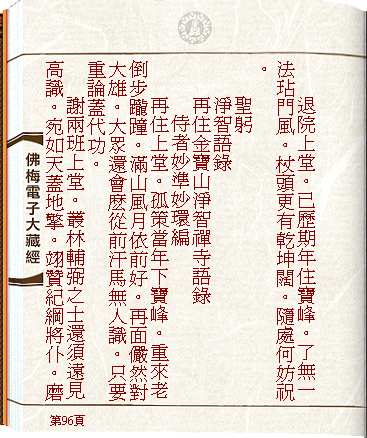 退院上堂。已歷期年住寶峰。了無一
法玷門風。杖頭更有乾坤闊。隨處何妨祝
聖躬
。
淨智語錄
再住金寶山淨智禪寺語錄
侍者妙準妙環編
再住上堂。孤策當年下寶峰。重來老
倒步躘踵。滿山風月依前好。再面儼然對
大雄。大眾還會麼從前汗馬無人識。只要
重論蓋代功。
謝兩班上堂。叢林輔弼之士還須遠見
高識。宛如天蓋地擎。翊贊紀綱將仆。磨
佛梅電子大藏經
第96頁